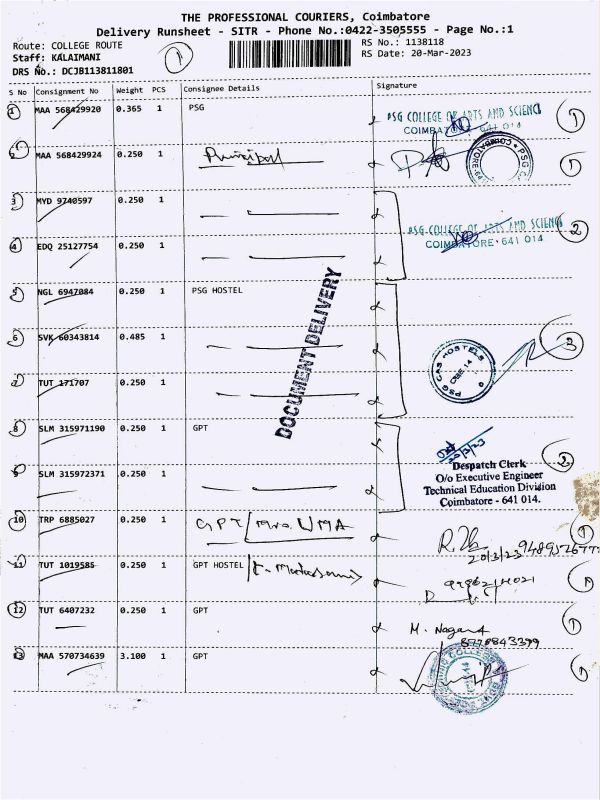 THE PROFESSIONAL COURIERS, Coimbatore
Delivery Runsheet - SITR - Phone No.:0422-3505555 - Page No.:1
Route: COLLEGE ROUTE
RS No.: 1138118
Staff: KALAIMANI
1
RS Date: 20-Mar-2023
DRS No.: DCJB113811801
S No Consignment No Weight PCS Consignee Details Signature
1 MAA 568429920 0.365 1 PSG
PSG COLLEGE OF ARTS AND SCIENCE
COIMBATORE 641 014
1
2 MAA 568429924 0.250 1 Principal
1
3 MYD 9740597 0.250 1
PSG COLLEGE OF ARTS AND SCIENCE
COIMBATORE - 641 014
2
4 EDQ 25127754 0.250 1
5 NGL 6947084 0.250 1 PSG HOSTEL
DOCUMENT DELIVERY
6 SVK 60343814 0.485 1
PSG CAS HOSTELS
CBE.14
3
7 TUT 171707 0.250 1
8 SLM 315971190 0.250 1 GPT
20/3/23
Despatch Clerk
O/o Executive Engineer
Technical Education Division
Coimbatore - 641 014.
2
9 SLM 315972371 0.250 1
10 TRP 6885027 0.250 1 GPT/Mrs. UMA
20/3/23
1
11 TUT 1019585 0.250 1 GPT HOSTEL
1
12 TUT 6407232 0.250 1 GPT
M. Nagar
8778843399
1
13 MAA 570734639 3.100 1 GPT
1